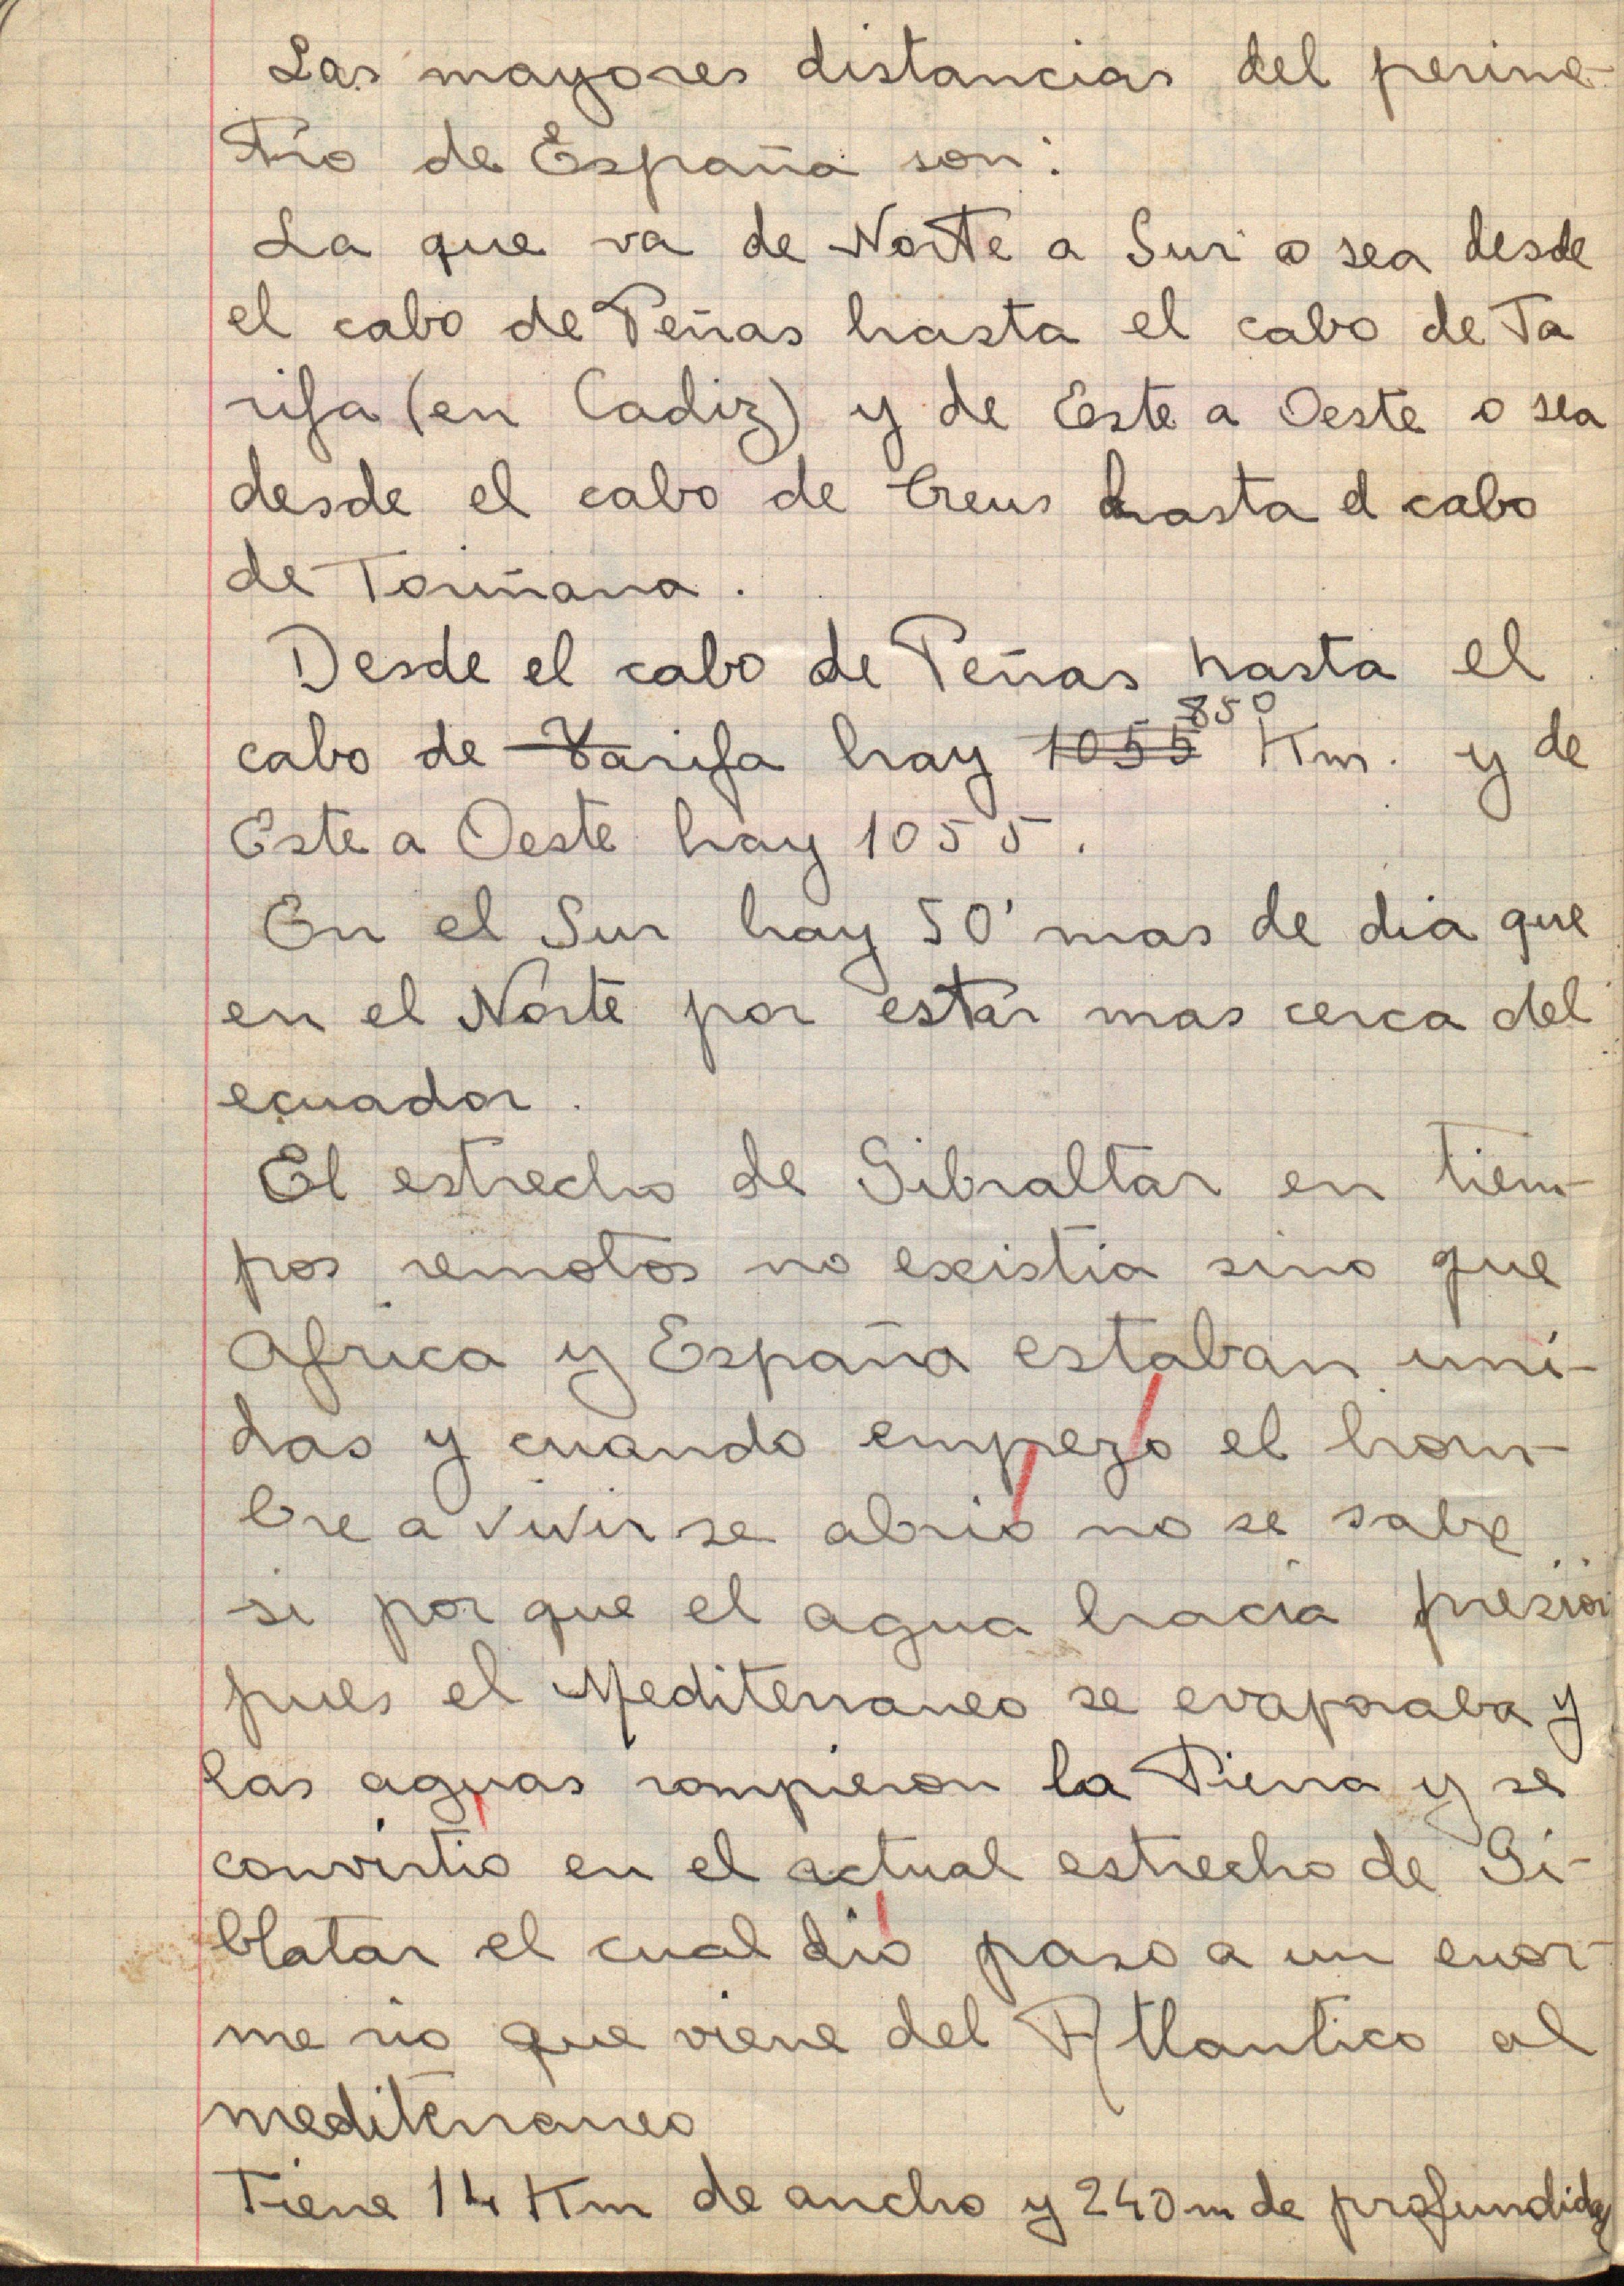 Las mayores distancias del perime-
trio de España son:
La que va de Norte a Sur o sea desde
el cabo de Peñas hasta el cabo de Ta
rifa (en Cadiz) y de Este a Oeste o sea
desde el cabo de Creus hasta el cabo
de Touriñana.
Desde el cabo de Peñas hasta el
850
cabo de Tarifa hay 1055 Km. y de
Este a Oeste hay 1055.
En el Sur hay 50' mas de dia que
en el Norte por estar mas cerca del
ecuador.
El estrecho de Gibraltar en tiem-
pos remotos no existia sino que
Africa y España estaban uni-
das y cuando empezo el hom-
bre a vivir se abrio no se sabe
si por que el agua hacia presion
pues el Mediterraneo se evaporaba y
las aguas rompieron la Tierra y se
convirtio en el actual estrecho de Gi-
blatar el cual dio paso a un enor-
me rio que viene del Atlantico al
mediterraneo
Tiene 14 Km de ancho y 240 m de profundidad